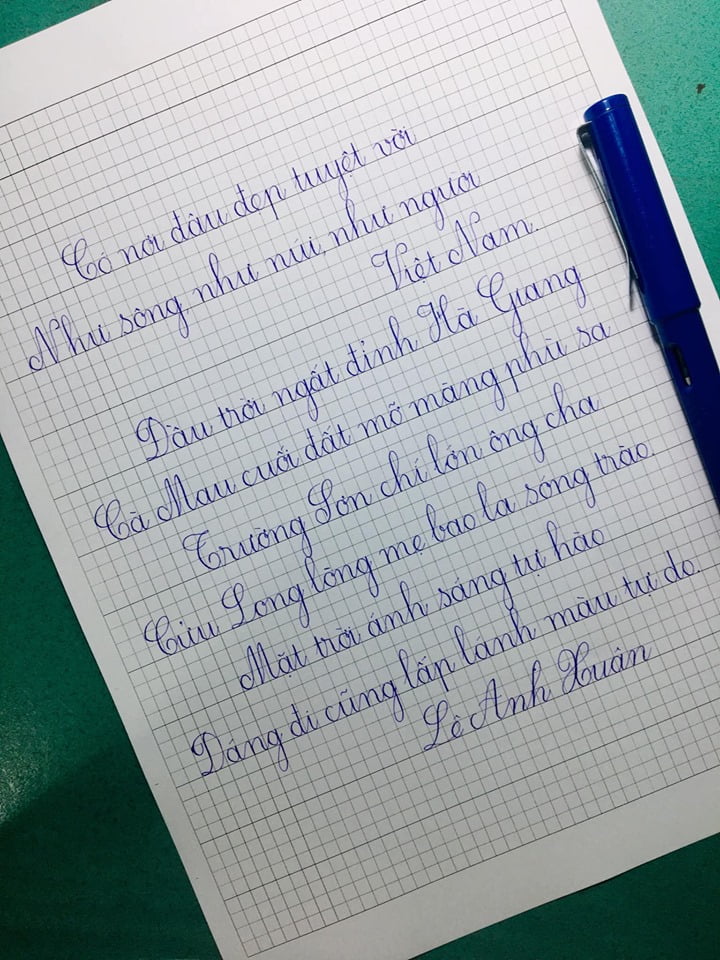 Có nơi đâu đẹp tuyệt vời
Như sông như núi, như người
Việt Nam.
Đầu trời ngất đỉnh Hà Giang
Cà Mau cuối đất mỡ màng phù sa
Trường Sơn chí lớn ông cha
Cửu Long lòng mẹ bao la sóng trào.
Mặt trời ánh sáng tự hào
Dáng đi cũng lấp lánh màu tự do.
Lê Anh Xuân